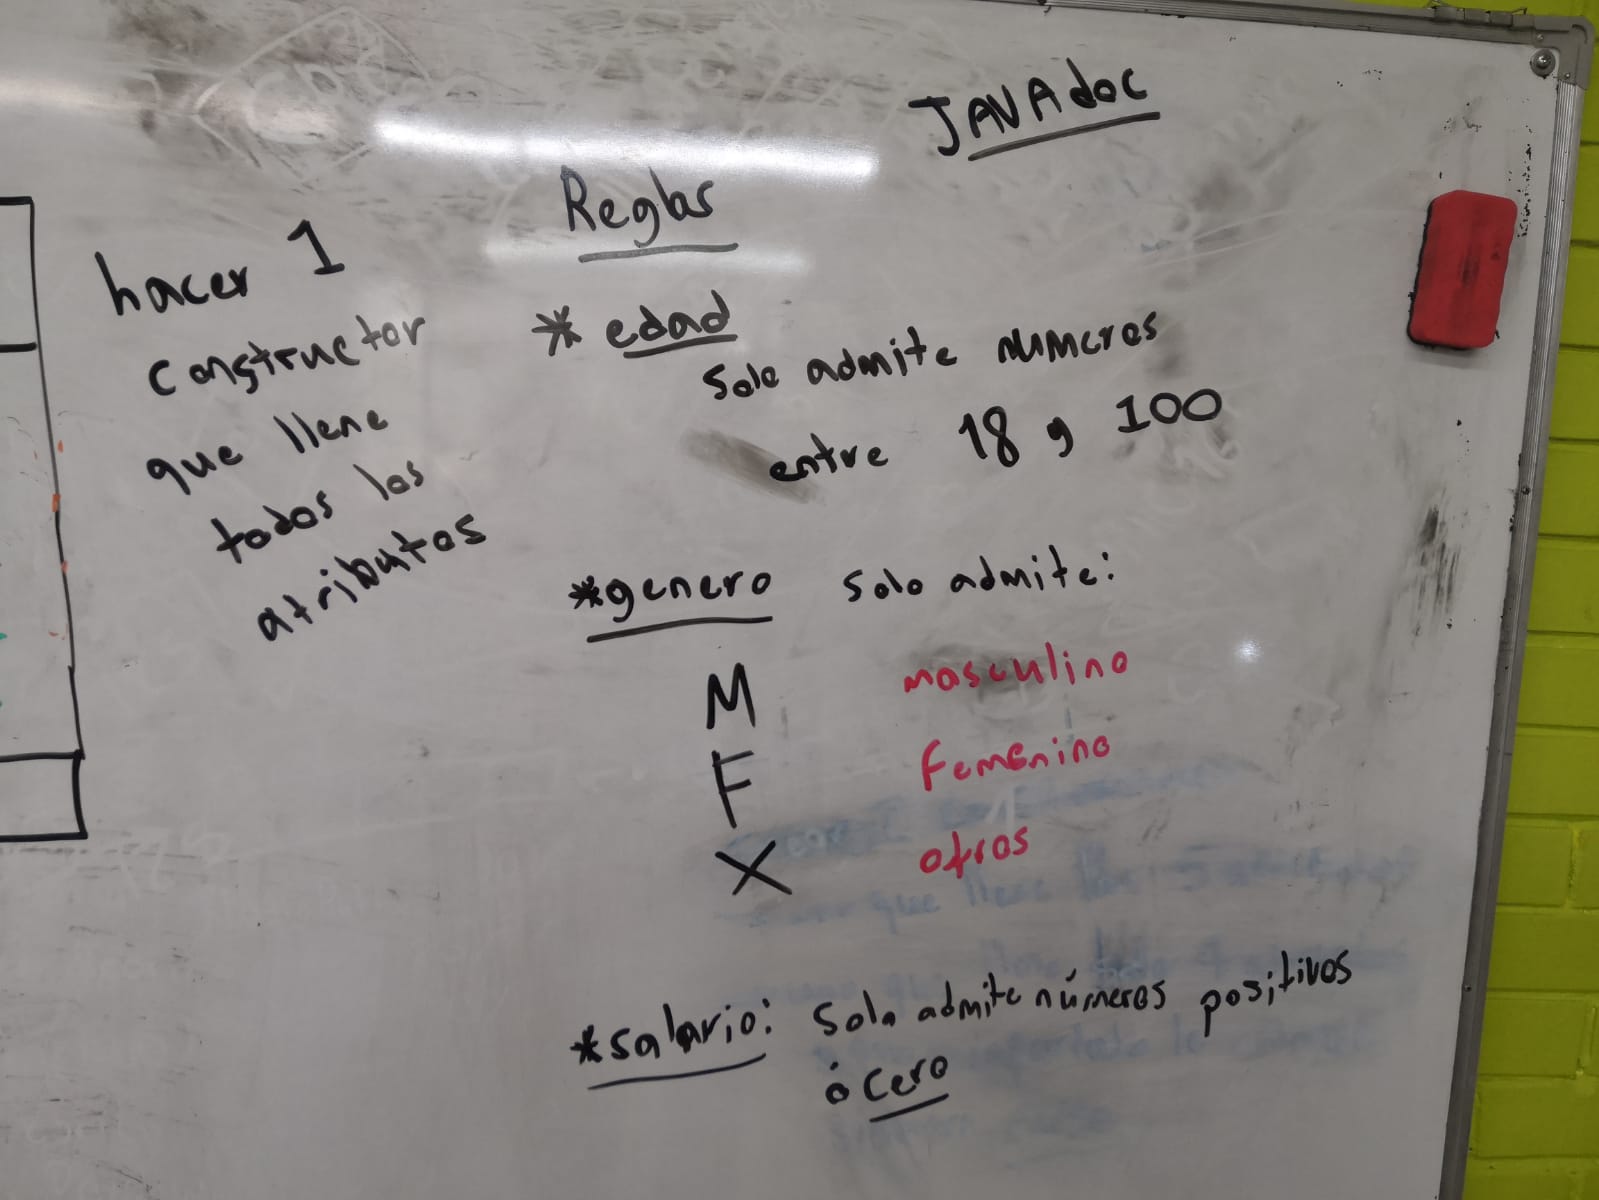 JAVAdoc
Reglas
hacer 1
constructor
que llene
todos los
atributos
* edad
Solo admite numeros
entre 18 y 100
*genero solo admite:
M masculino
F Femenino
X otros
*salario: Solo admite números positivos
ó cero